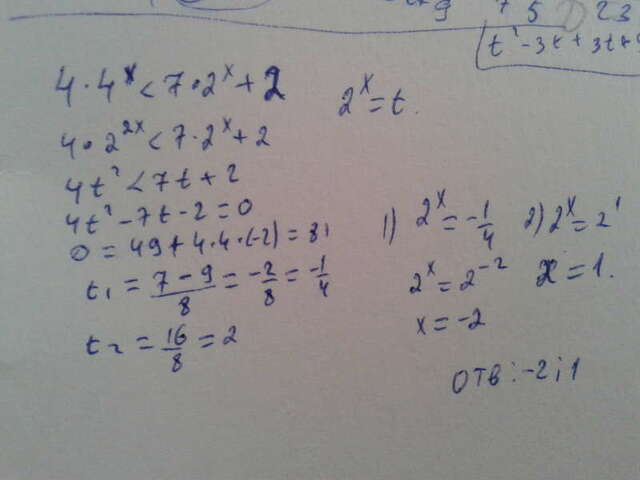 9 7 5 23
t² - 3t + 3t +
4 · 4^x < 7 · 2^x + 2
2^x = t.
4 · 2^2x < 7 · 2^x + 2
4t² < 7t + 2
4t² - 7t - 2 = 0
0 = 49 + 4 · 4 · (-2) = 81
t₁ = (7 - 9)/8 = -2/8 = -1/4
t₂ = 16/8 = 2
1) 2^x = -1/4
2^x = 2^-2
x = -2
2) 2^x = 2^1
x = 1.
ОТВ: -2; 1